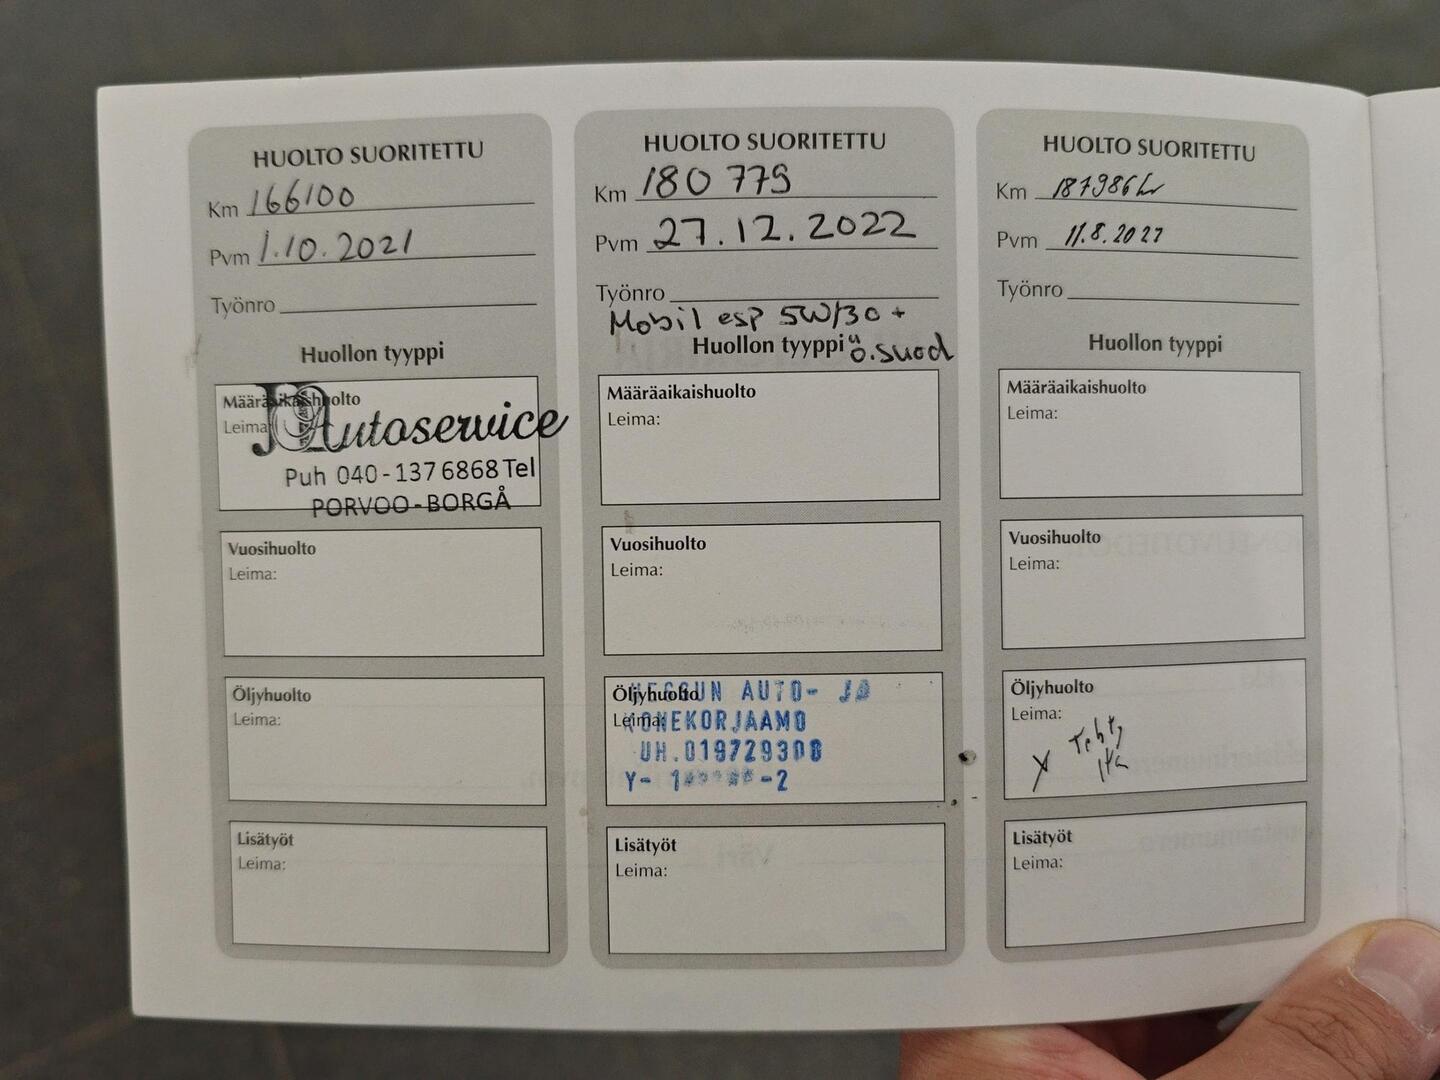 HUOLTO SUORITETTU
Km 166100
Pvm 1.10.2021
Työnro
Huollon tyyppi
Määräaikaishuolto
Leima:
Autoservice
Puh 040-137 6868 Tel
PORVOO-BORGÅ
Vuosihuolto
Leima:
Öljyhuolto
Leima:
Lisätyöt
Leima:
HUOLTO SUORITETTU
Km 180 779
Pvm 27.12.2022
Työnro
Mobil esp 5W/30 +
Huollon tyyppi ö.suod
Määräaikaishuolto
Leima:
Vuosihuolto
Leima:
Öljyhuolto
AUTO- JA
Leima:
KONEKORJAAMO
UH.019729308
Lisätyöt
Leima:
HUOLTO SUORITETTU
Km
Pvm
Työnro
Huollon tyyppi
Määräaikaishuolto
Leima:
Vuosihuolto
Leima:
Öljyhuolto
Leima:
Lisätyöt
Leima: